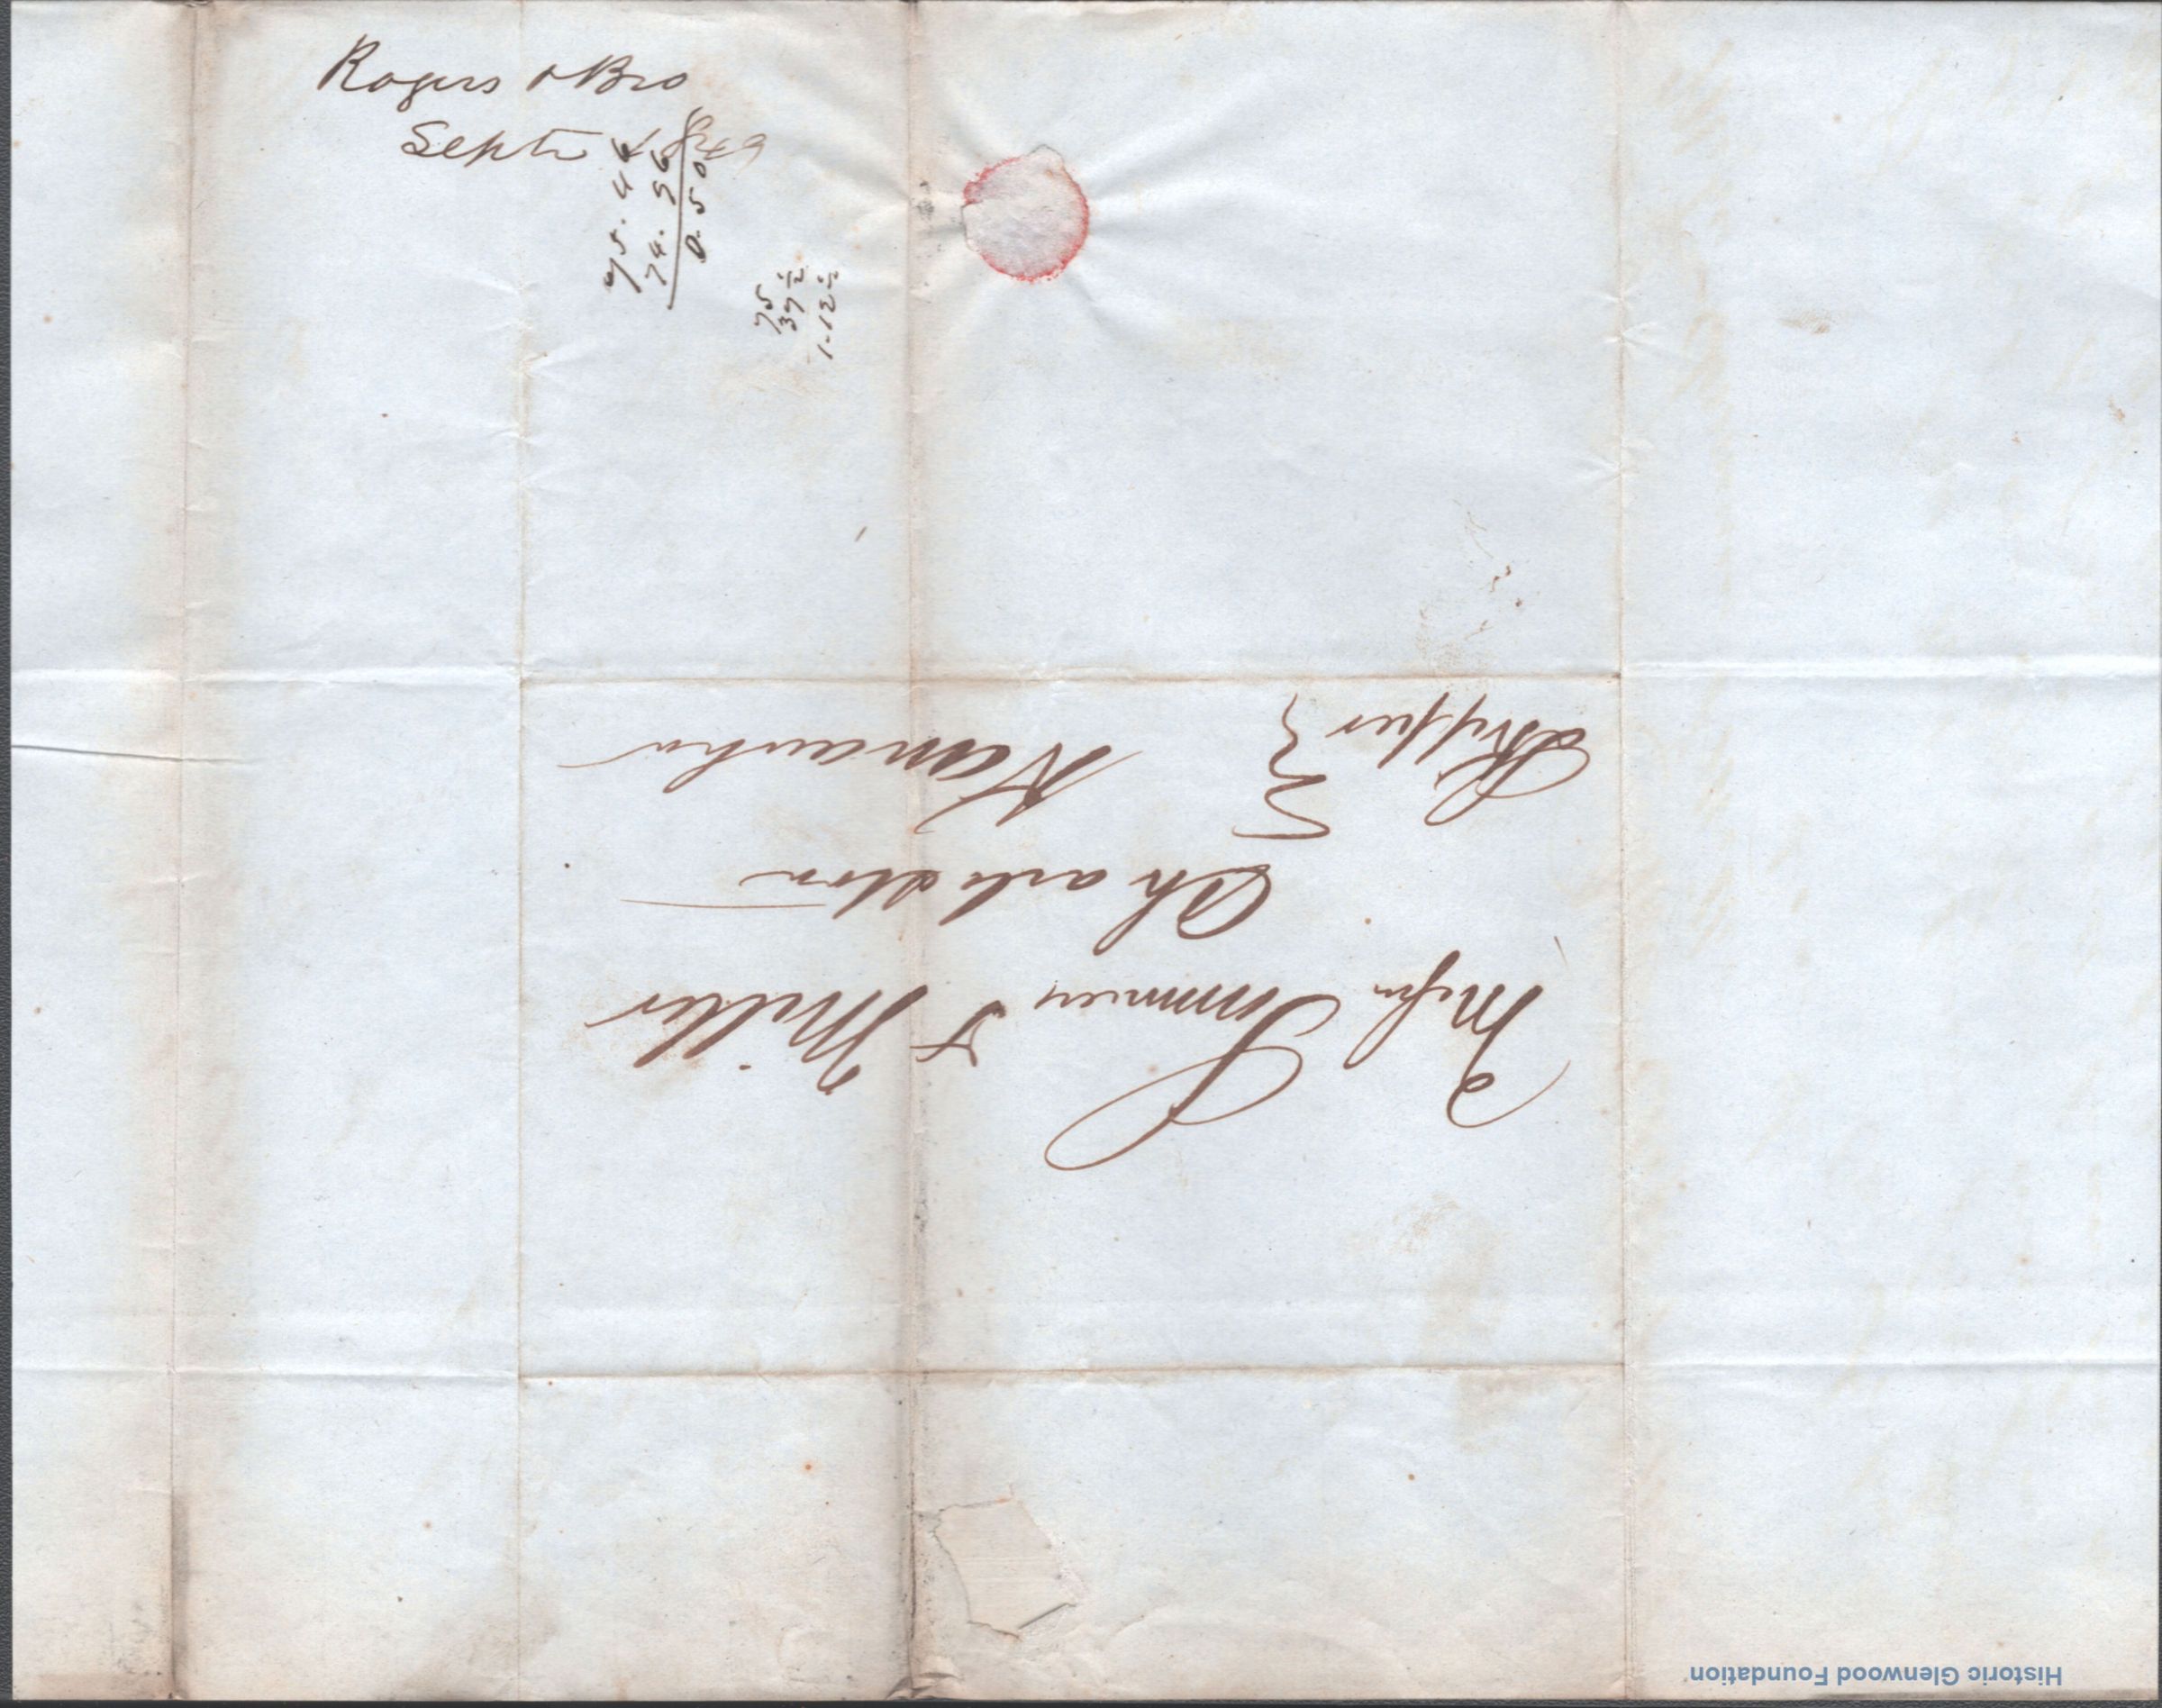 Rogers & Bro
Septr 1849
75.46
74.96
0.50
75
37½
1.12½
Messrs Summers & Miller
Charleston
Kanawha
Skipper
Historic Glenwood Foundation